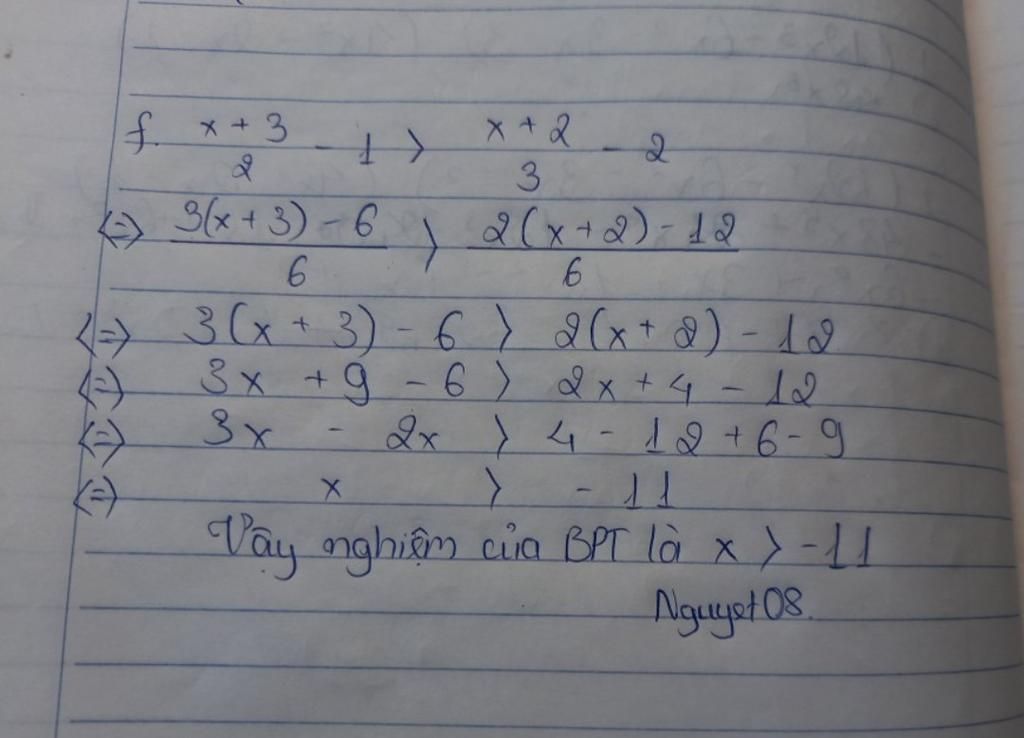 f. \frac{x + 3}{2} - 1 > \frac{x + 2}{3} - 2
<=> \frac{3(x + 3) - 6}{6} > \frac{2(x + 2) - 12}{6}
<=> 3(x + 3) - 6 > 2(x + 2) - 12
<=> 3x + 9 - 6 > 2x + 4 - 12
<=> 3x - 2x > 4 - 12 + 6 - 9
<=> x > - 11
Vậy nghiệm của BPT là x > -11
Nguyet08.